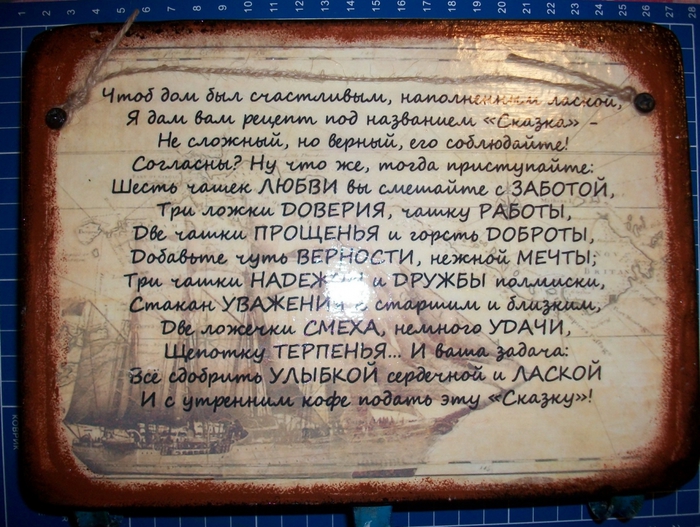 Чтоб дом был счастливым, наполненным лаской,
Я дам вам рецепт под названием «Сказка» -
Не сложный, но верный, его соблюдайте!
Согласны? Ну что же, тогда приступайте:
Шесть чашек ЛЮБВИ вы смешайте с ЗАБОТОЙ,
Три ложки ДОВЕРИЯ, чашку РАБОТЫ,
Две чашки ПРОЩЕНЬЯ и горсть ДОБРОТЫ,
Добавьте чуть ВЕРНОСТИ, нежной МЕЧТЫ;
Три чашки НАДЕЖДЫ и ДРУЖБЫ полмиски,
Стакан УВАЖЕНИЯ к старшим и близким,
Две ложечки СМЕХА, немного УДАЧИ,
Щепотку ТЕРПЕНЬЯ... И ваша задача:
Всё сдобрить УЛЫБКОЙ сердечной и ЛАСКОЙ
И с утренним кофе подать эту «Сказку»!